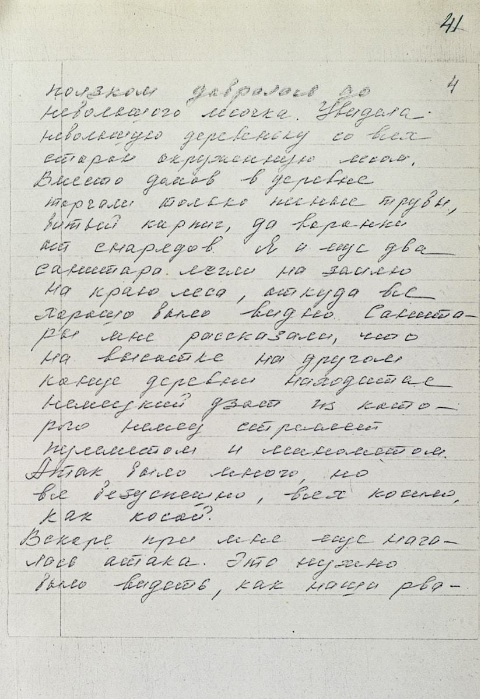 41
4
ползком добралась до
небольшого лесочка. Увидела
небольшую деревеньку со всех
сторон окруженную лесом.
Вместо домов в деревне
торчали только печные трубы,
битый кирпич, да воронки
от снарядов. Я и еще два
санитара легли на землю
на краю леса, откуда все
хорошо было видно. Санита-
ры мне рассказали, что
на высотке на другом
конце деревни находится
немецкий дзот из кото-
рого немец стреляет
пулеметом и минометом.
Атак было много, но
все безуспешно, всех косило,
как косой.
Вскоре при мне еще нача-
лась атака. Это нужно
было видеть, как наши рва-